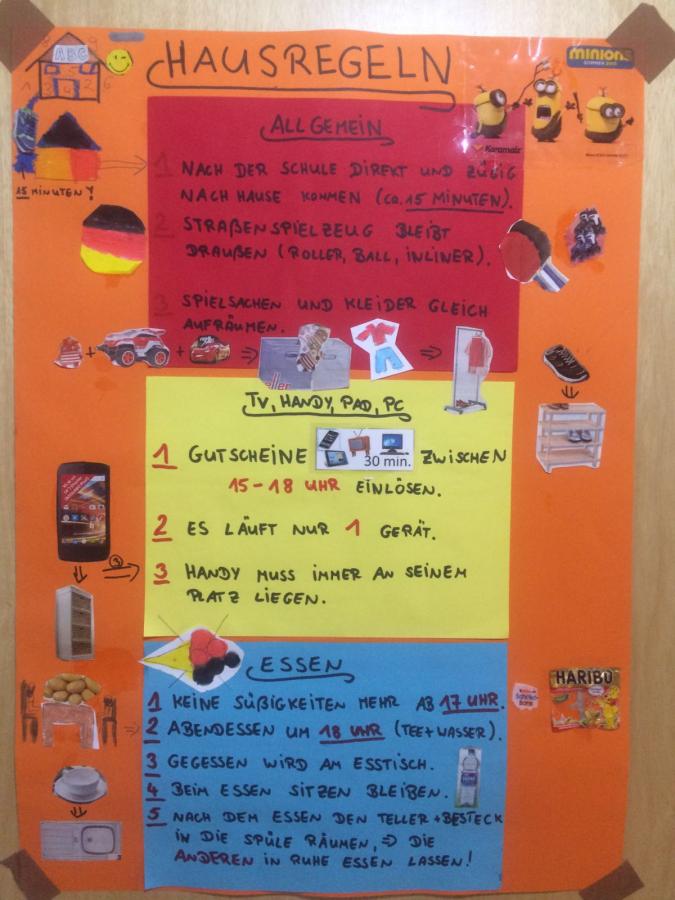 HAUSREGELN
ABC
MINIONS
SOMMER 2015
15 MINUTEN!
Karamalz
ALLGEMEIN
1 NACH DER SCHULE DIREKT UND ZÜGIG
NACH HAUSE KOMMEN (ca. 15 MINUTEN).
2 STRAßENSPIELZEUG BLEIBT
DRAUßEN (ROLLER, BALL, INLINER).
3 SPIELSACHEN UND KLEIDER GLEICH
AUFRÄUMEN.
TV, HANDY, PAD, PC
1 GUTSCHEINE 30 min. ZWISCHEN
15-18 UHR EINLÖSEN.
2 ES LÄUFT NUR 1 GERÄT.
3 HANDY MUSS IMMER AN SEINEM
PLATZ LIEGEN.
ESSEN
1 KEINE SÜßIGKEITEN MEHR AB 17 UHR.
HARIBO
2 ABENDESSEN UM 18 UHR (TEE+WASSER).
3 GEGESSEN WIRD AM ESSTISCH.
4 BEIM ESSEN SITZEN BLEIBEN.
5 NACH DEM ESSEN DEN TELLER + BESTECK
IN DIE SPÜLE RÄUMEN, ⇒ DIE
ANDEREN IN RUHE ESSEN LASSEN!